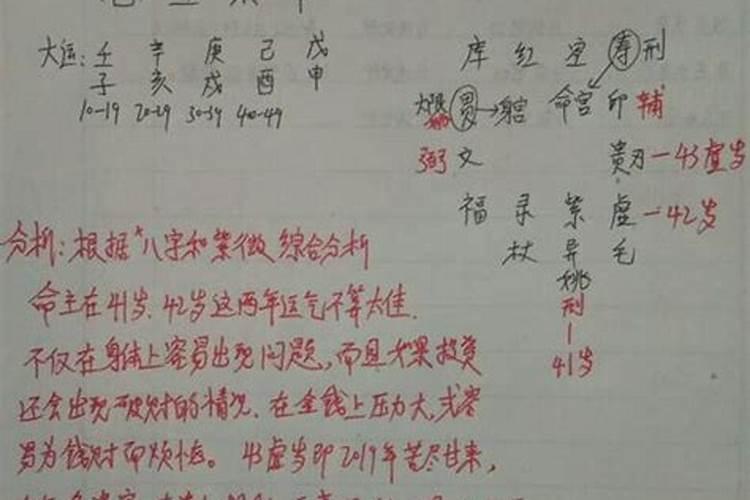 大运: 壬 辛 庚 己 戊
子 亥 戌 酉 申
10-19 20-29 30-39 40-49
库 红 空 寿 刑
贯→ 命宫 印 辅
弼 文 贵 刃-43虚岁
福 录 紫 虚-42岁
杖 异 毛
姚
刑
41岁
分析: 根据"八字和紫微综合分析
命主在41岁、42岁这两年运气不算太佳.
不仅在身体上容易出现问题,而且如果投资
还会出现破财的情况、在金钱上压力大,或容
易为钱财而烦恼。43虚岁即2019年苦尽甘来,